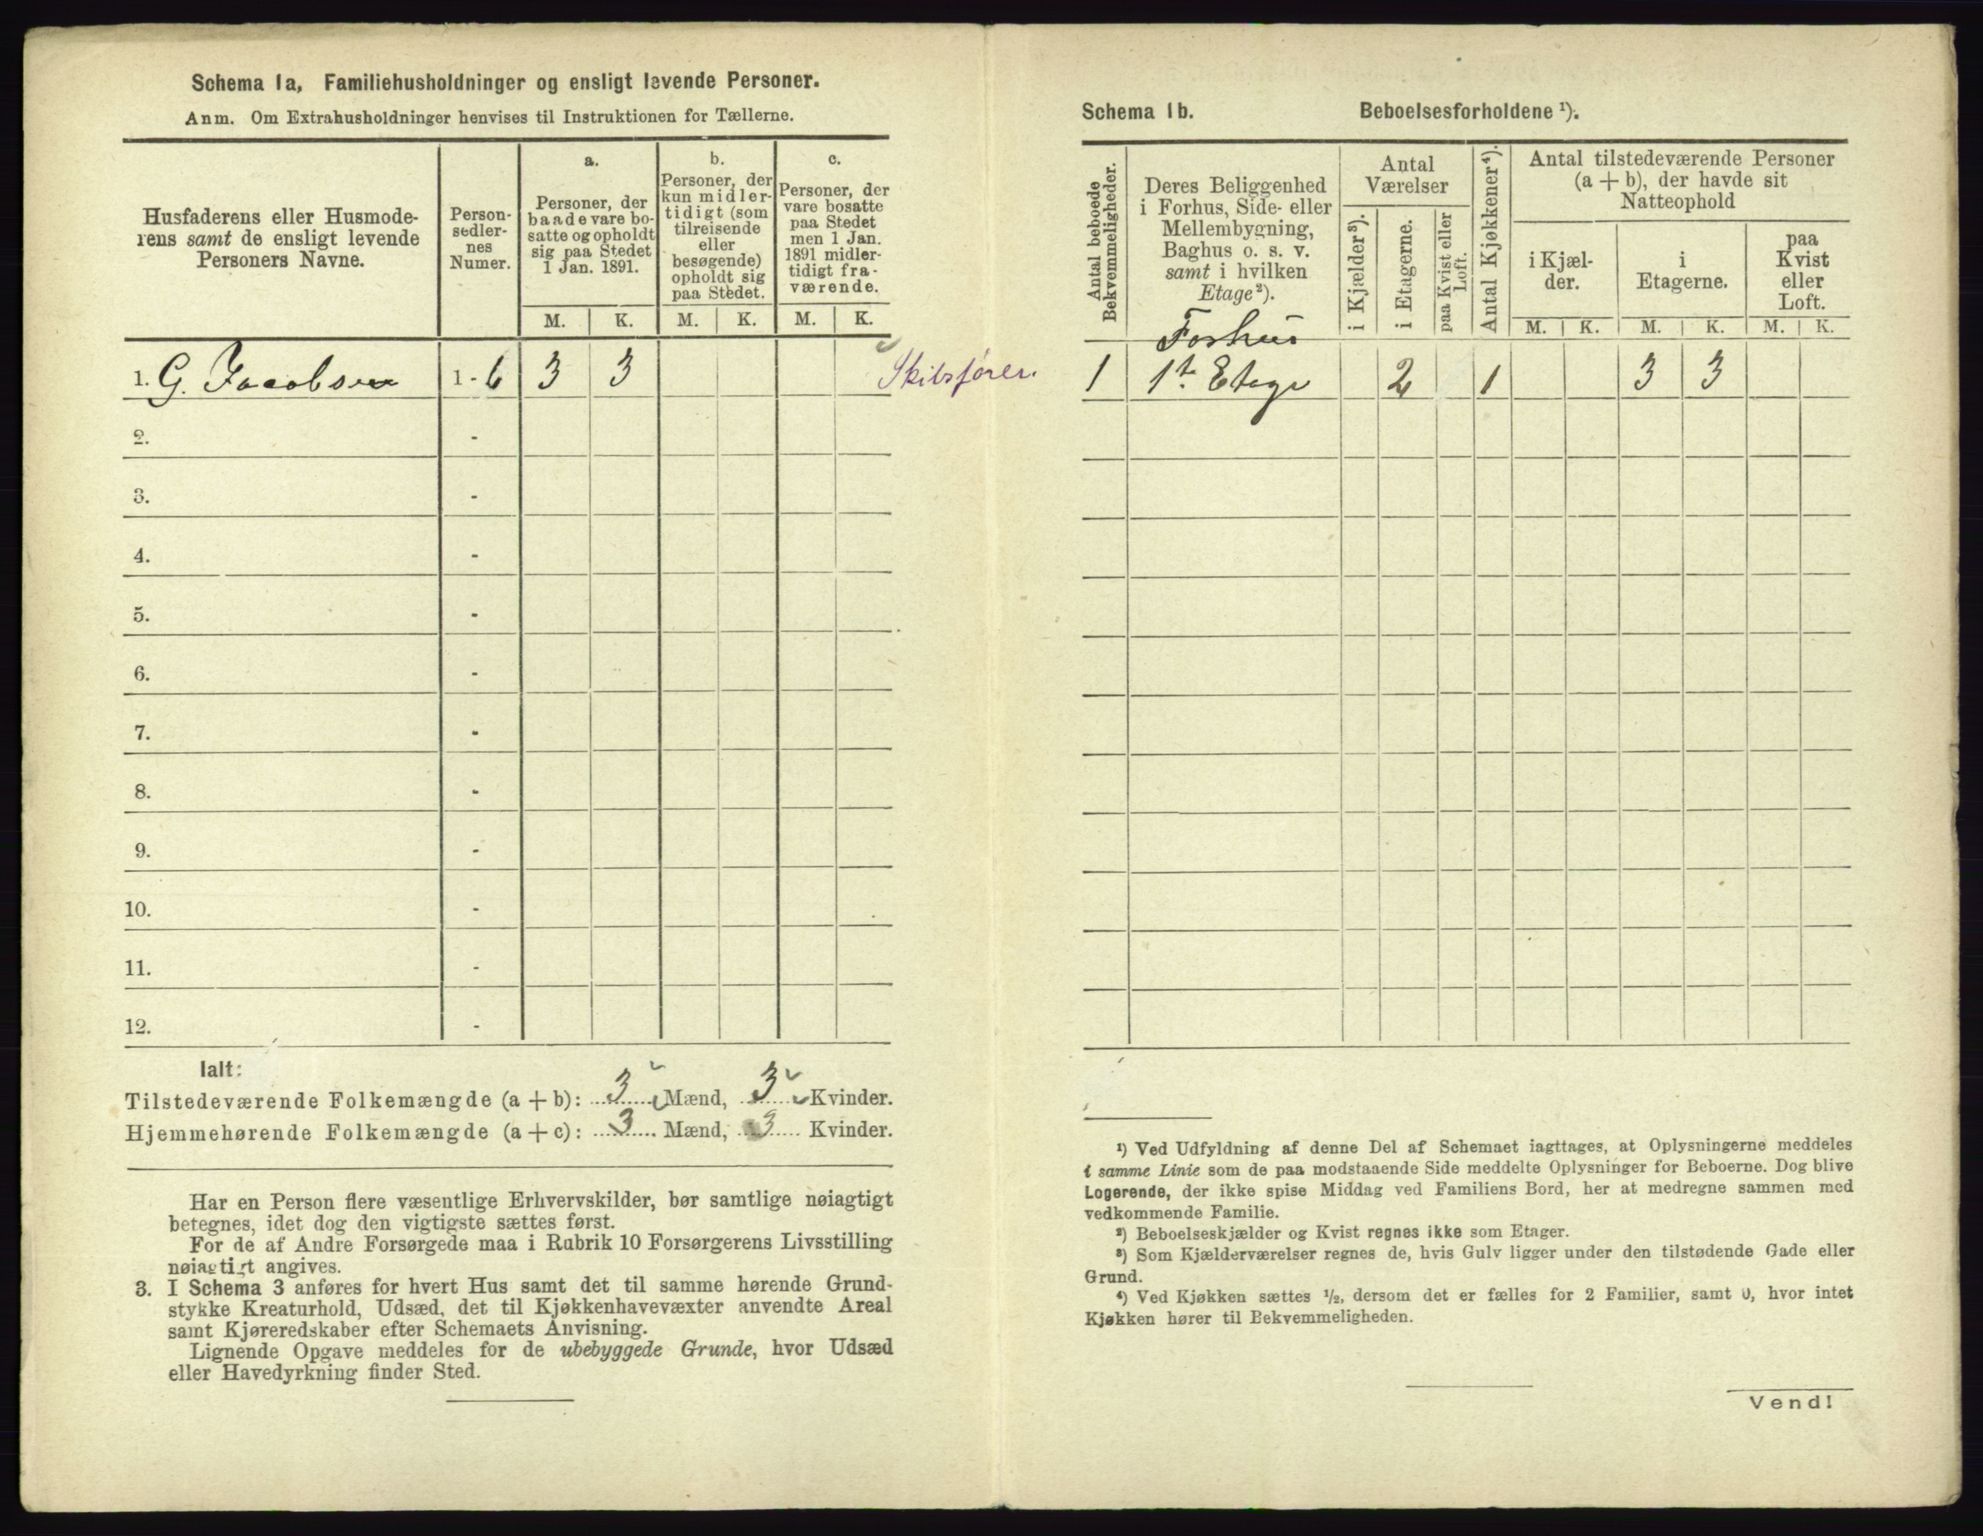 Schema 1a, Familiehusholdninger og ensligt levende Personer.
Anm. Om Extrahusholdninger henvises til Instruktionen for Tællerne.
Husfaderens eller Husmode-
rens samt de ensligt levende
Personers Navne.
Person-
sedler-
nes
Numer.
a.
Personer, der
baade vare bo-
satte og opholdt
sig paa Stedet
1 Jan. 1891.
b.
Personer, der
kun midler-
tidigt (som
tilreisende
eller
besøgende)
opholdt sig
paa Stedet.
c.
Personer, der
vare bosatte
paa Stedet
men 1 Jan.
1891 midler-
tidigt fra-
værende.
M. K. M. K. M. K.
1. G. Jacobsen 1-6 3 3 Skibsfører.
2. -
3. -
4. -
5. -
6. -
7. -
8. -
9. -
10. -
11. -
12. -
Ialt:
Tilstedeværende Folkemængde (a + b): 3 Mænd, 3 Kvinder.
Hjemmehørende Folkemængde (a + c): 3 Mænd, 3 Kvinder.
Har en Person flere væsentlige Erhvervskilder, bør samtlige nøiagtigt
betegnes, idet dog den vigtigste sættes først.
For de af Andre Forsørgede maa i Rubrik 10 Forsørgerens Livsstilling
nøiagtigt angives.
3. I Schema 3 anføres for hvert Hus samt det til samme hørende Grund-
stykke Kreaturhold, Udsæd, det til Kjøkkenhavevæxter anvendte Areal
samt Kjøreredskaber efter Schemaets Anvisning.
Lignende Opgave meddeles for de ubebyggede Grunde, hvor Udsæd
eller Havedyrkning finder Sted.
Schema 1b. Beboelsesforholdene ¹).
Antal beboede
Bekvemmeligheder.
Deres Beliggenhed
i Forhus, Side- eller
Mellembygning,
Baghus o. s. v.
samt i hvilken
Etage²).
Antal
Værelser
i Kjælder³).
i Etagerne.
paa Kvist eller
Loft.
Antal Kjøkkener⁴).
Antal tilstedeværende Personer
(a + b), der havde sit
Natteophold
i Kjæl-
der.
i
Etagerne.
paa
Kvist
eller
Loft.
M. K. M. K. M. K.
Forhus
1 1te Etage 2 1 3 3
¹) Ved Udfyldning af denne Del af Schemaet iagttages, at Oplysningerne meddeles
i samme Linie som de paa modstaaende Side meddelte Oplysninger for Beboerne. Dog blive
Logerende, der ikke spise Middag ved Familiens Bord, her at medregne sammen med
vedkommende Familie.
²) Beboelseskjælder og Kvist regnes ikke som Etager.
³) Som Kjælderværelser regnes de, hvis Gulv ligger under den tilstødende Gade eller
Grund.
⁴) Ved Kjøkken sættes ½, dersom det er fælles for 2 Familier, samt 0, hvor intet
Kjøkken hører til Bekvemmeligheden.
Vend!